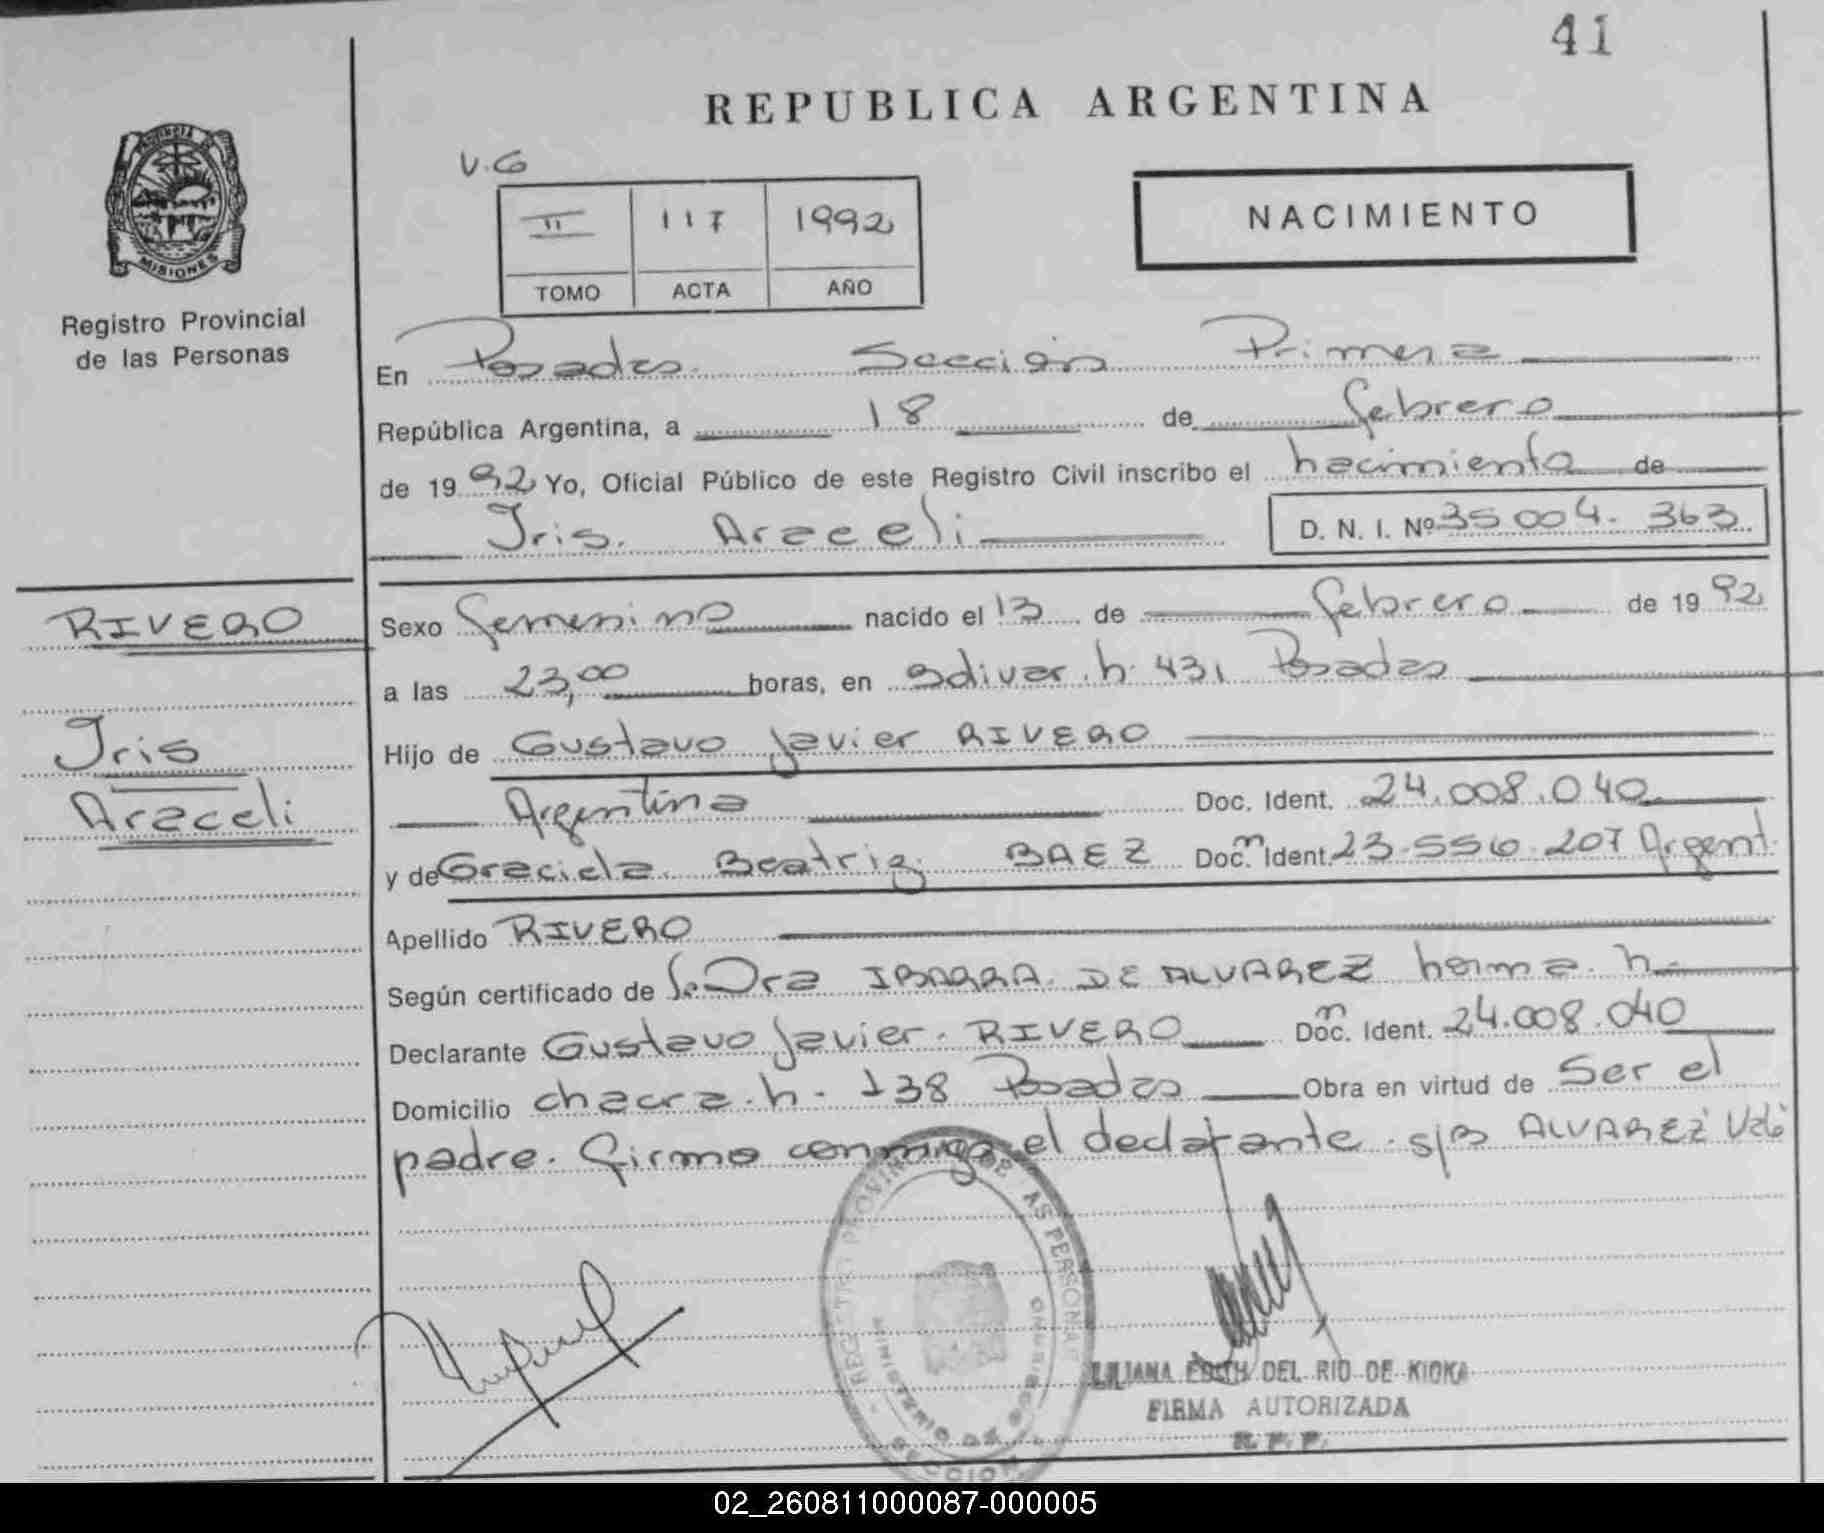 41
REPUBLICA ARGENTINA
V.G
II 117 1992
TOMO ACTA AÑO
NACIMIENTO
PROVINCIA DE
MISIONES
Registro Provincial
de las Personas
En Posadas Sección Primera
República Argentina, a 18 de febrero
de 1992 Yo, Oficial Público de este Registro Civil inscribo el nacimiento de
Iris Araceli D. N. I. Nº 35 004. 363
RIVERO
Iris
Araceli
Sexo femenino nacido el 13 de febrero de 1992
a las 23,00 horas, en Bolivar. n. 431 Posadas
Hijo de Gustavo Javier RIVERO
Argentina Doc. Ident. 24.008.040
y de Graciela Beatriz BAEZ Doc. Ident. 23.556.207 Argent.
Apellido RIVERO
Según certificado de Dra IBARRA DE ALVAREZ
Declarante Gustavo Javier. RIVERO Doc. Ident. 24.008.040
Domicilio chacra. n. 138 Posadas Obra en virtud de Ser el
padre. firmo conmigo el declarante. s/B ALVAREZ Vale
REGISTRO PROVINCIAL DE LAS PERSONAS
MINISTERIO DE GOBIERNO
SECCION
LILIANA EDITH DEL RIO DE KIOKA
FIRMA AUTORIZADA
R. P. P.
02_260811000087-000005